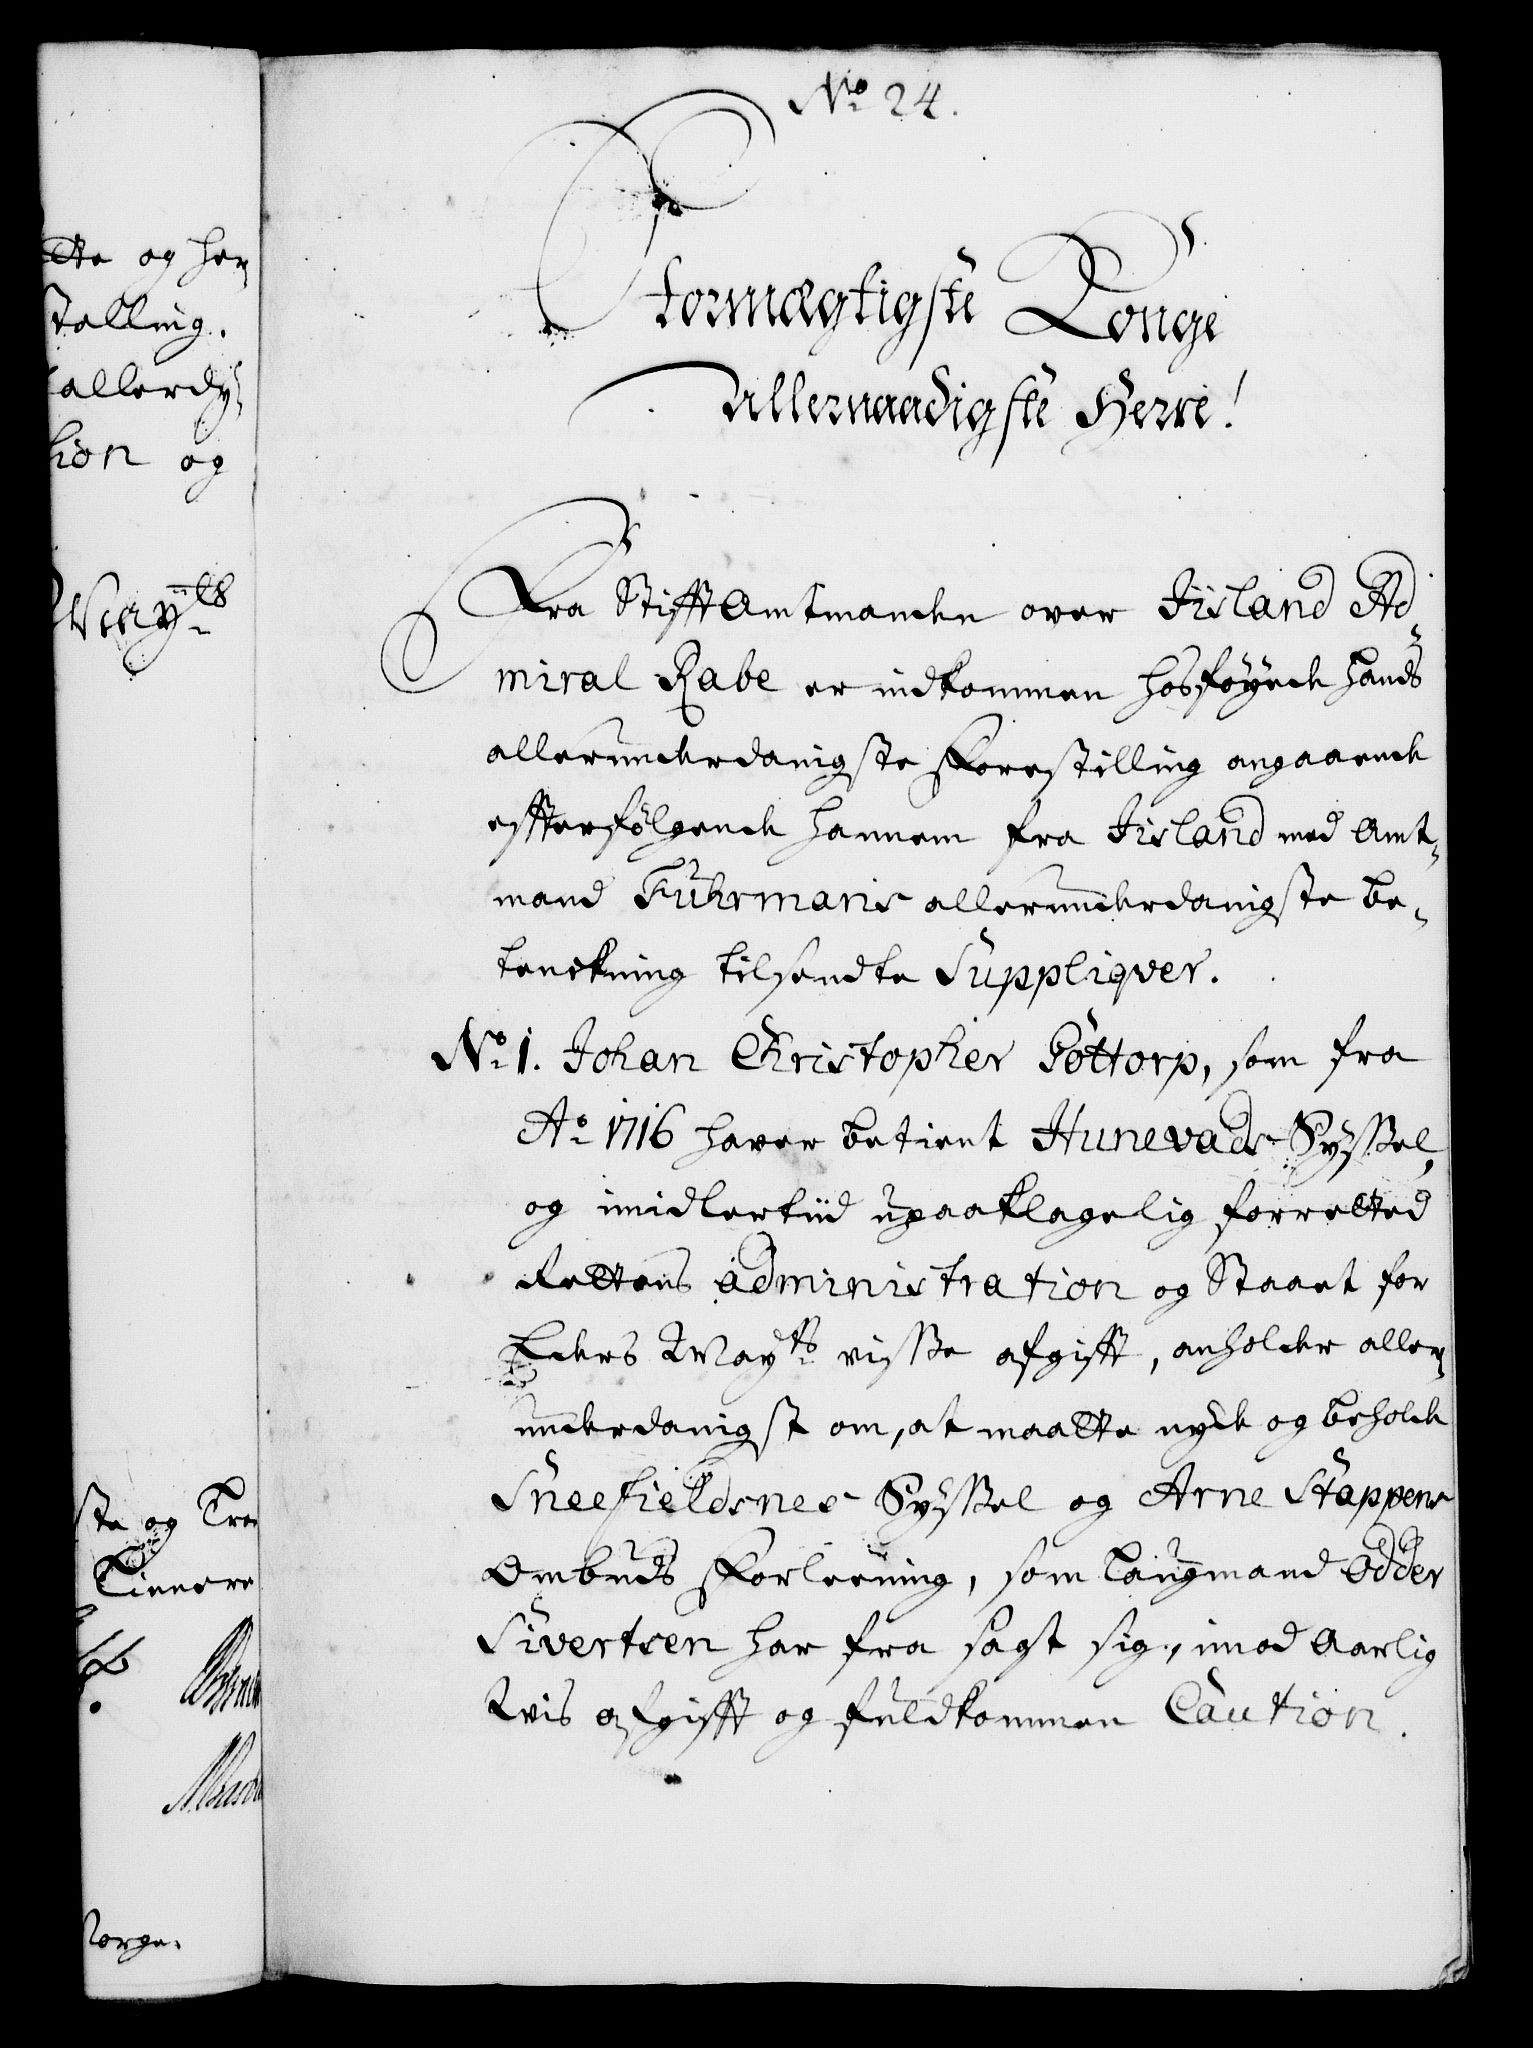 No 24.
Stormægtigste Konge
Allernaadigste Herre!
Fra StifftAmtmanden over Jisland Ad-
miral Rabe er indkommen hosföyede hands
allerunderdanigste Forestilling angaaende
effterfölgende hannem fra Jisland med Amt-
mand Fuhrmans allerunderdanigste be-
tenckning tilsendte Suppliqver.
No 1. Johan Christopher Gottorp, som fra
Ao 1716 haver betient Hunevads Sÿssel,
og imidlertiid upaaklagelig forretted
Rettens administration og Staaet for
Eders Mayts visse afgifft, anholder aller-
underdanigst om, at maatte nyde og beholde
Sneefieldsnes Sÿssel og Arne Stappens
Ombuds Forleening, som Laugmand Odder
Sivertsen har fra sagt sig, imod Aarlig
Wis afgifft og fuldkommen Caution.
tte og her-
stelling.
allerdy-
tion og
Mayts
ste og Tro
Tienere
Norge.